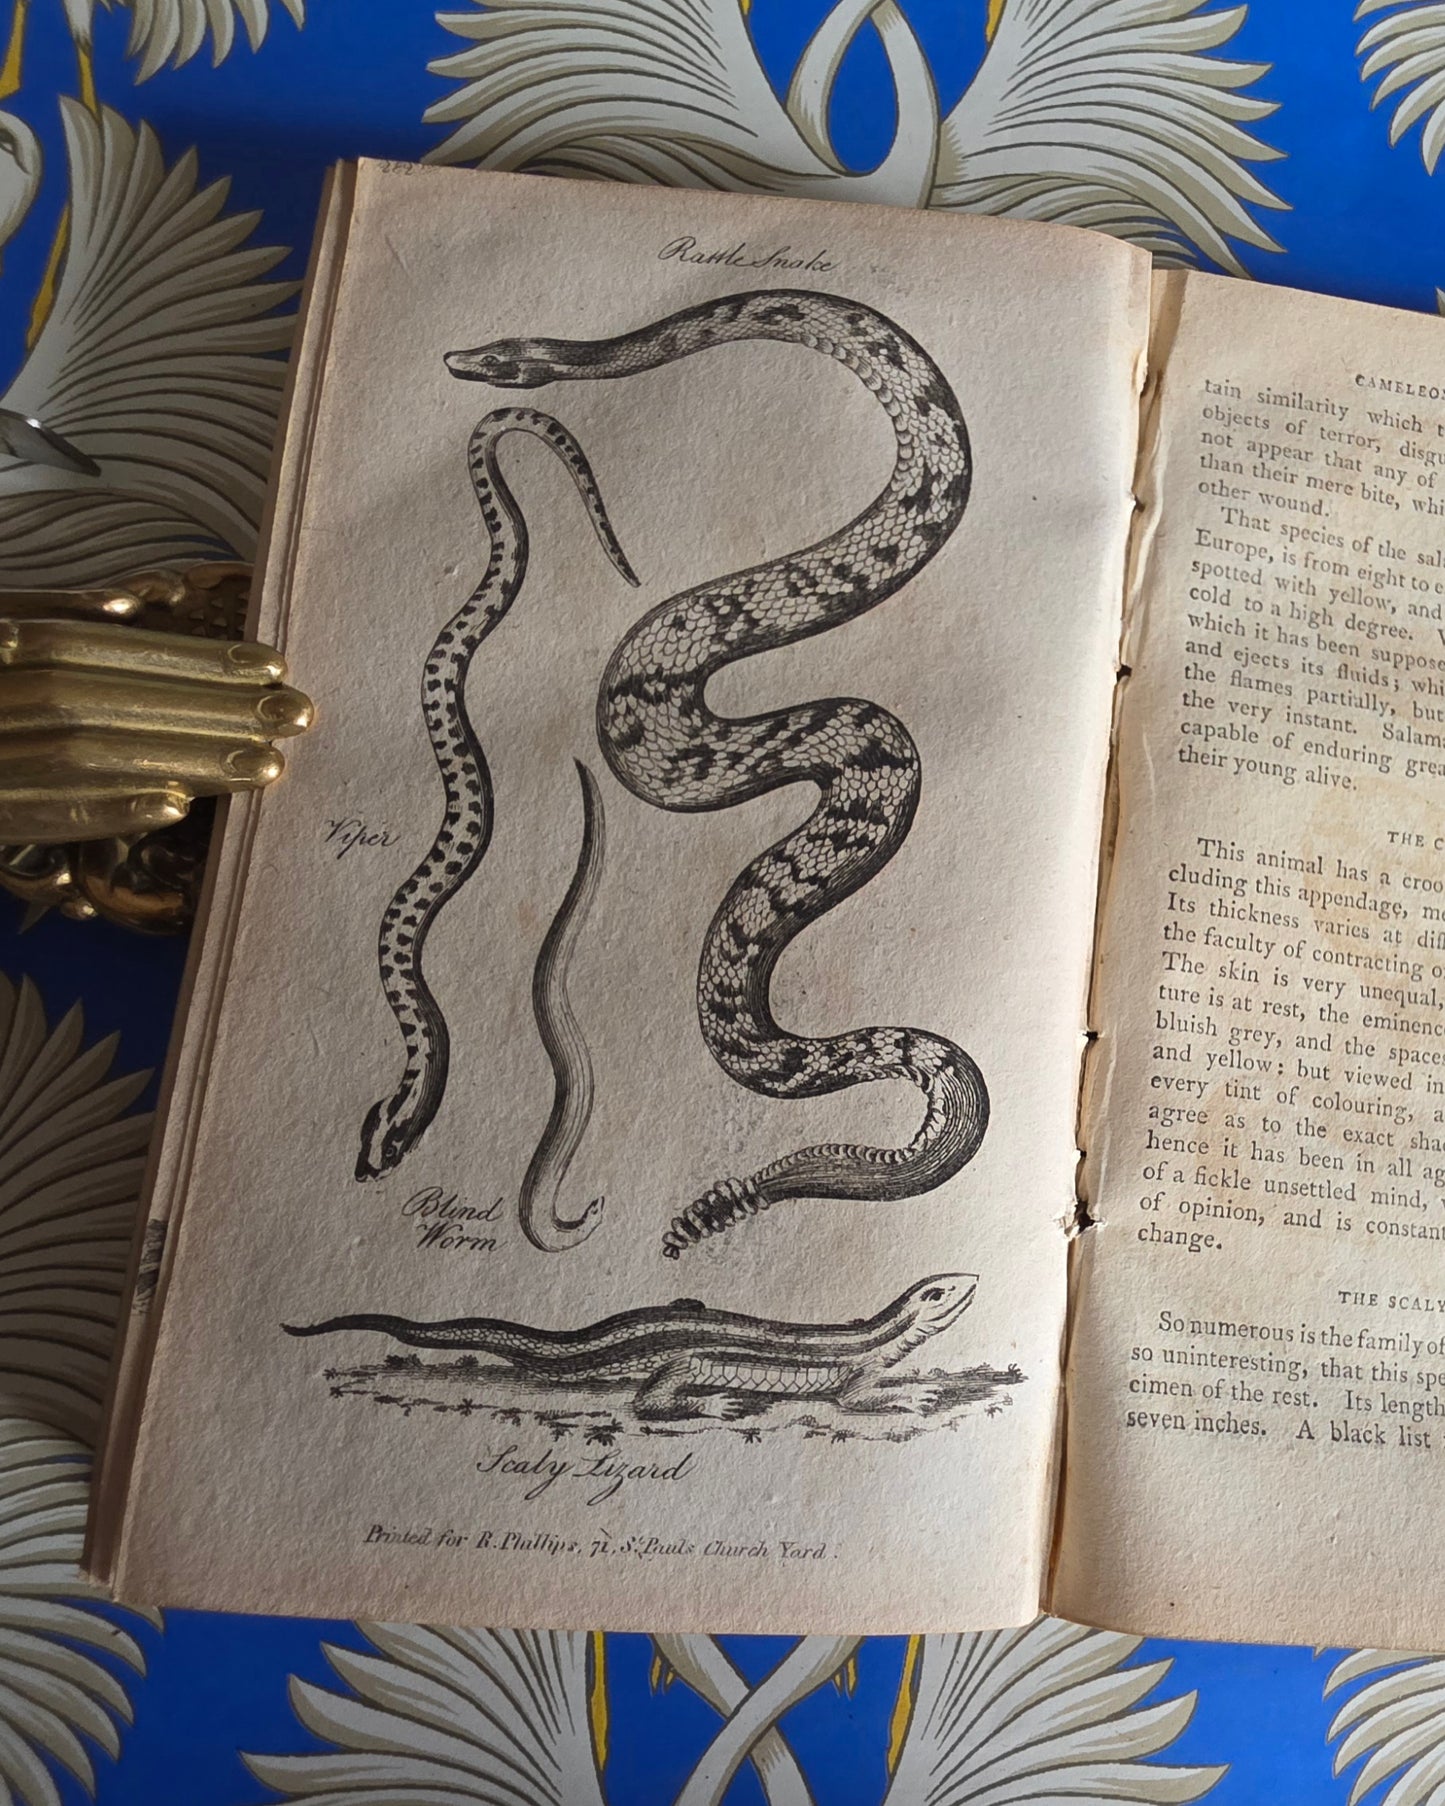 282
Rattle Snake
Viper
Blind
Worm
Scaly Lizard
Printed for R. Phillips, 71, St. Pauls Church Yard.
CAMELEON
tain similarity which
objects of terror,
not appear that any of
than their mere bite,
other wound.
That species of the
Europe, is from eight to
spotted with yellow, and
cold to a high degree.
which it has been
and ejects its fluids;
the flames partially, but
the very instant.
capable of enduring
their young alive.
THE
This animal has a
cluding this appendage,
Its thickness varies at
the faculty of contracting
The skin is very unequal,
ture is at rest, the
bluish grey, and the
and yellow: but viewed in
every tint of colouring,
agree as to the exact
hence it has been in all
of a fickle unsettled mind,
of opinion, and is
change.
THE SCALY
So numerous is the family of
so uninteresting, that this
cimen of the rest. Its length
seven inches. A black list